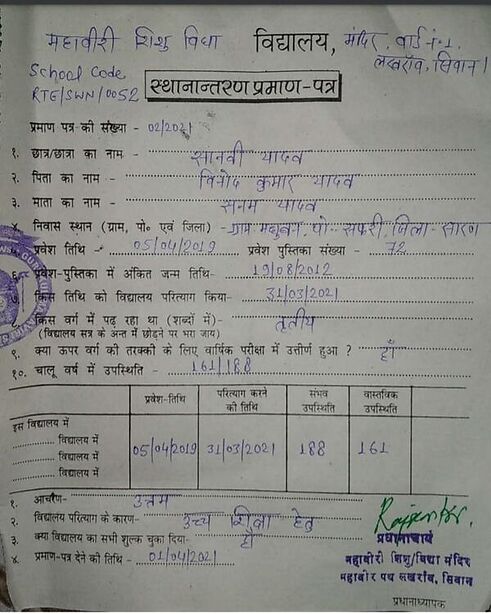 महावीरी शिशु विद्या विद्यालय, मंदिर, वार्ड नं-1
लखराँव, सिवान।
School Code
RTE/SWN/0052
स्थानान्तरण प्रमाण-पत्र
प्रमाण पत्र की संख्या - 02/2021
१. छात्र/छात्रा का नाम - सानवी यादव
२. पिता का नाम - विनोद कुमार यादव
३. माता का नाम - सनम यादव
४. निवास स्थान (ग्राम, पो० एवं जिला) - ग्राम मधुवन, पो- सफरी, जिला- सारण
प्रवेश तिथि - 05/04/2019 प्रवेश पुस्तिका संख्या - 72
६. प्रवेश-पुस्तिका में अंकित जन्म तिथि- 19/08/2012
किस तिथि को विद्यालय परित्याग किया- 31/03/2021
किस वर्ग में पढ़ रहा था (शब्दों में)- तृतीय
(विद्यालय सत्र के अन्त में छोड़ने पर भरा जाय)
९. क्या ऊपर वर्ग की तरक्की के लिए वार्षिक परीक्षा में उत्तीर्ण हुआ ? हाँ
१०. चालू वर्ष में उपस्थिति - 161/188
प्रवेश-तिथि परित्याग करने की तिथि संभव उपस्थिति वास्तविक उपस्थिति
इस विद्यालय में
विद्यालय में
विद्यालय में 05/04/2019 31/03/2021 188 161
विद्यालय में
१. आचरण- उत्तम
२. विद्यालय परित्याग के कारण- उच्च शिक्षा हेतु
३. क्या विद्यालय का सभी शुल्क चुका दिया- हाँ
४. प्रमाण-पत्र देने की तिथि - 01/04/2021
प्रधानाचार्य
महावीरी शिशु/विद्या मंदिर
महावीर पथ लखराँव, सिवान
प्रधानाध्यापक